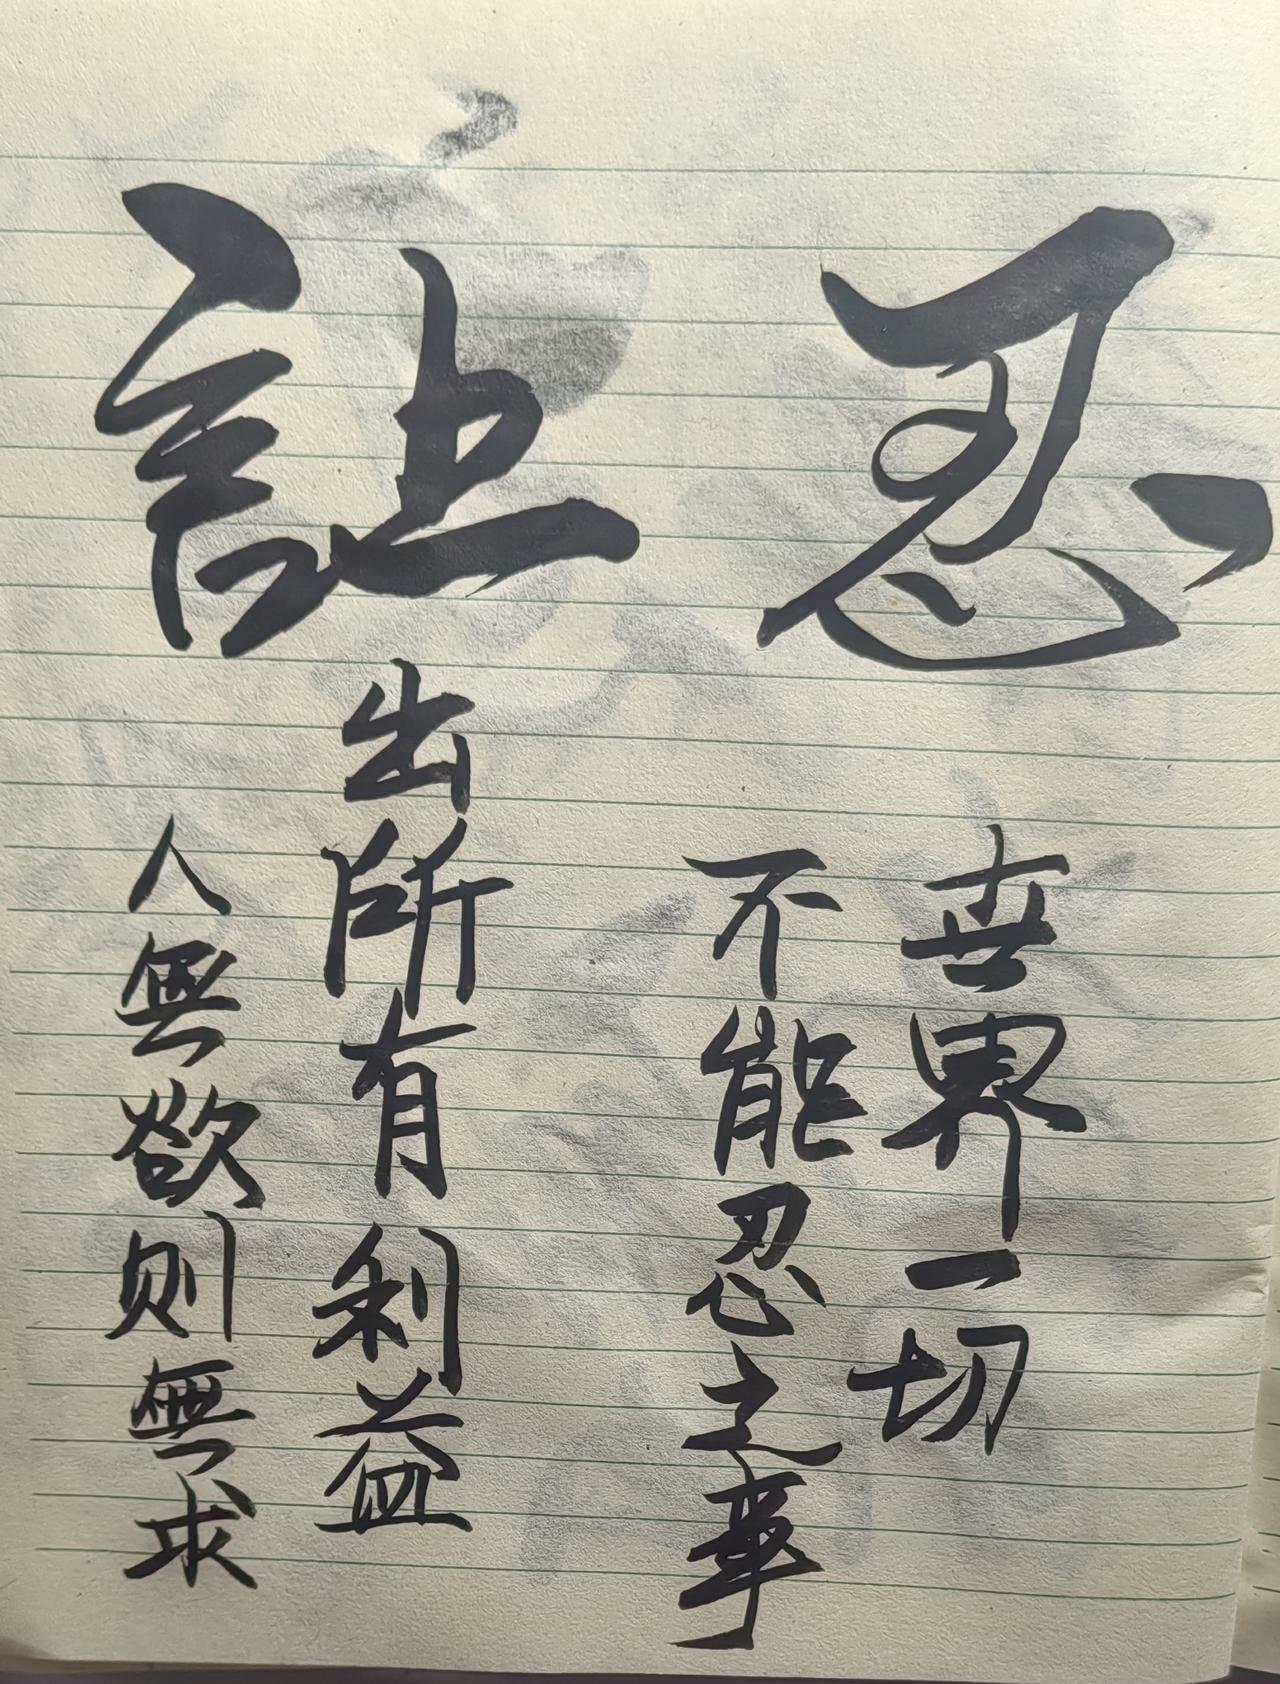 忍
世界一切
不能忍之事
让
出所有利益
人無欲则無求